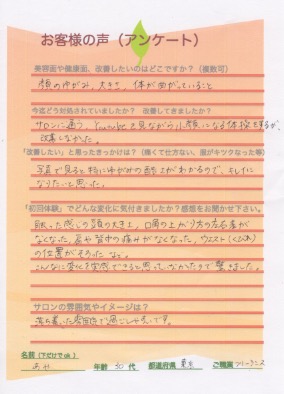 お客様の声（アンケート）
美容面や健康面、改善したいのはどこですか？（複数可）
顔のゆがみ、大きさ、体が曲がっていること
今迄どう対処されていましたか？　改善してきましたか？
サロンに通う、Youtubeを見ながら小顔になる体操をするが、
改善しなかった。
「改善したい」と思ったきっかけは？（痛くて仕方ない、服がキツクなった等）
写真で見ると特にゆがみの
がわかるので、
になりたいと思った。
「初回体験」でどんな変化に気付きましたか？感想をお聞かせ下さい。
眠った感じの顔の大きさ、口角の上がり方の左右差が
なくなった。肩や背中の痛みがなくなった。ウエスト（くびれ）
の位置がそろった
こんなに変化を実感できると思っていなかったので驚きました。
サロンの雰囲気やイメージは？
落ち着いた雰囲気で過ごしやすいです。
名前（下だけでok）
年齢 30 代　都道府県 東京　ご職業 フリーランス